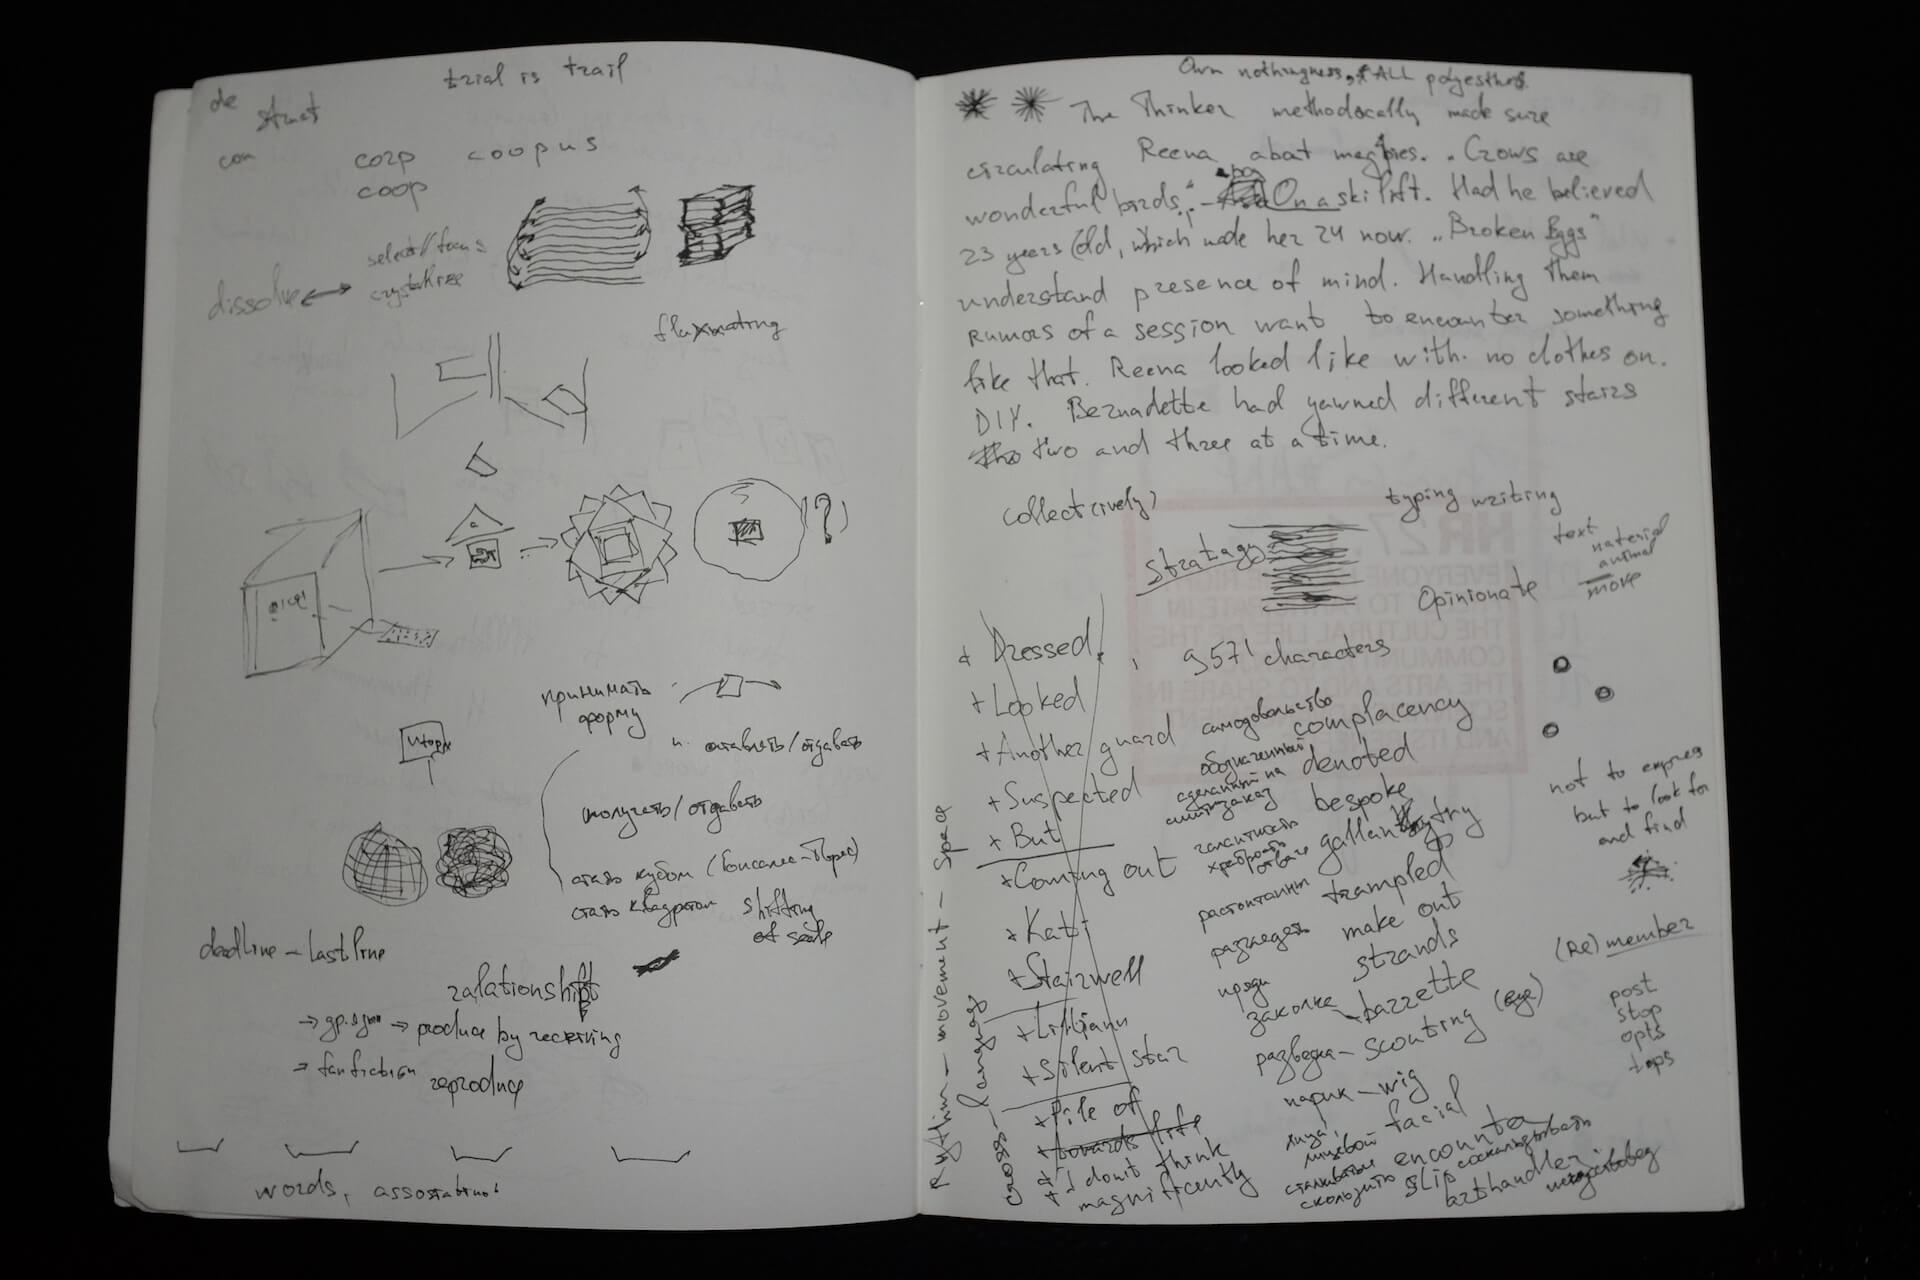 trial is trail
de
struct
con
corp coopus
coop
select/focus
crystallize
dissolve
fluxmating
(?)
принимать
форму
оставлять/отдавать
получать/отдавать
стать кубом
стать квадратом shifting
of scale
deadline – lastline
relationshift
→ produce by receiving
→ fanfiction reproduce
words,
Own nothingness, ALL
The Thinker methodically made sure
circulating Reena about magpies. „Crows are
wonderful birds." On a ski lift. Had he believed
23 years old, which made her 24 now. „Broken Eggs"
understand presence of mind. Handling them
Rumors of a session want to encounter something
like that. Reena looked like with no clothes on.
DIY. Bernadette had yawned different stairs
two and three at a time.
collect(ively)
typing writing
text
material
animal
move
strategy
Opinionate
+ Dressed. , 9571 characters
+ Looked
+ Another guard
+ Suspected
+ But
+ Coming out
+ Kati
+ Stairwell
+ Silent star
+ Pile of
+ towards life
+ I don't think
+ magnificently
Rythim – movement – space
cross – language
самодовольство complacency
обозначенный denoted
сделанный на bespoke
галантность gallantry
храбрость
отвага
растоптанный trampled
разглядеть make out
пряди strands
заколка – barrette
разведка – scouting (eye)
парик – wig
лица, facial
лицевой
encounter
скользить slip соскальзывать
arthandler
not to express
but to look for
and find
(Re) member
post
stop
opts
tops